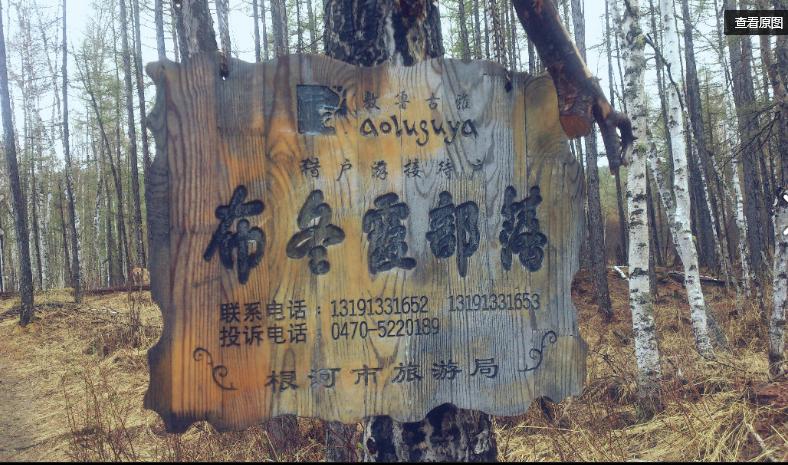 查看原图
敖鲁古雅
aoluguya
猎户游接待户
布冬霞部落
联系电话：13191331652 13191331653
投诉电话：0470-5220189
根河市旅游局